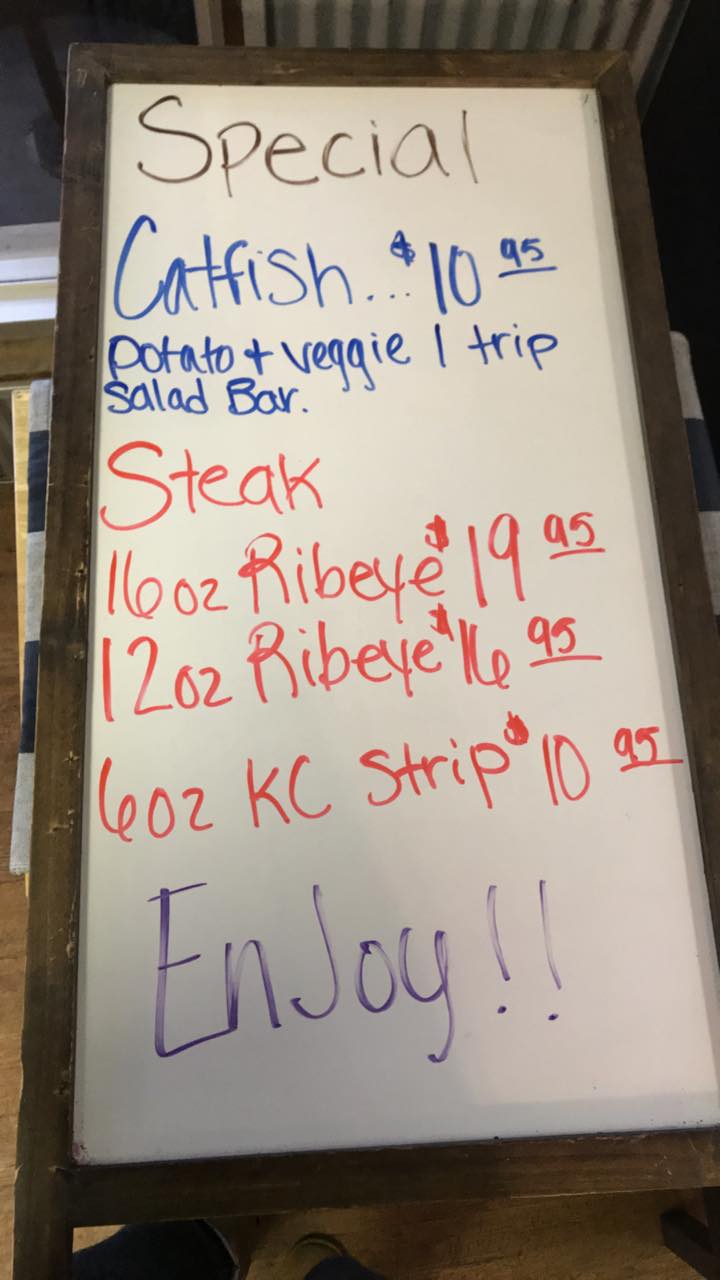 Special
Catfish...$10 95
potato + veggie 1 trip
salad Bar.
Steak
16oz Ribeye $19 95
12oz Ribeye $16 95
6oz KC Strip $10 95
EnJoy!!